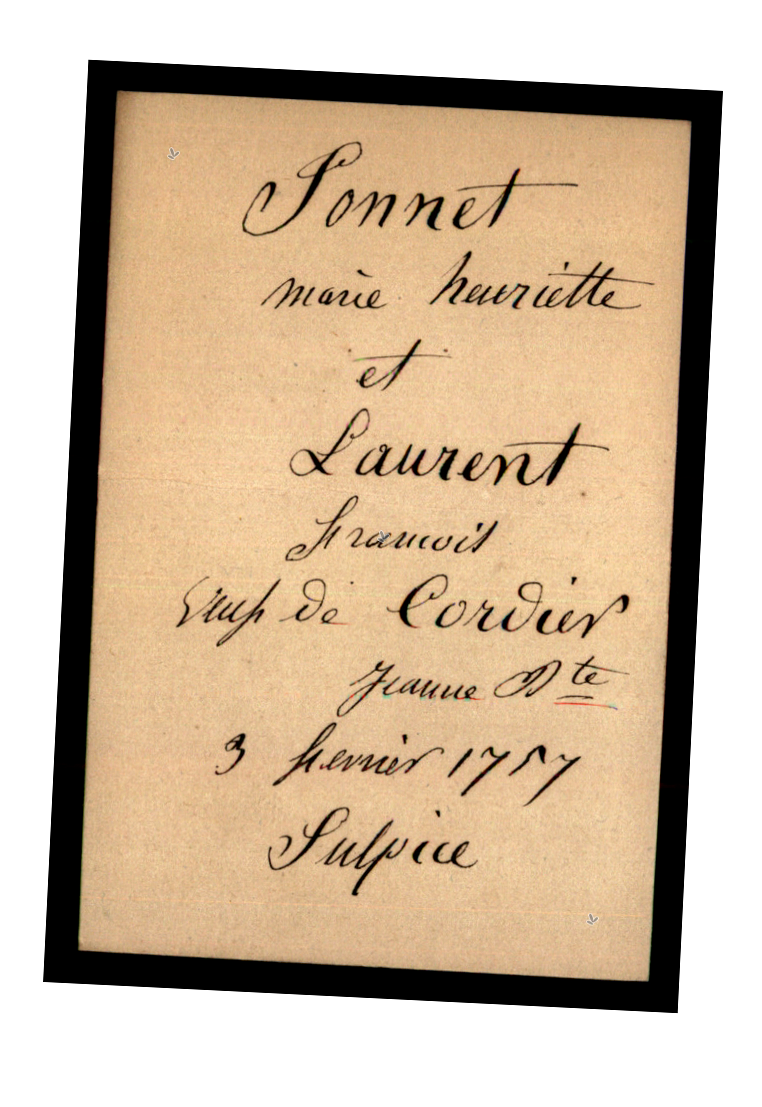 Sonnet
marie henriette
et
Laurent
francois
veuf de Cordier
Jeanne Bte
3 fevrier 1757
Sulpice